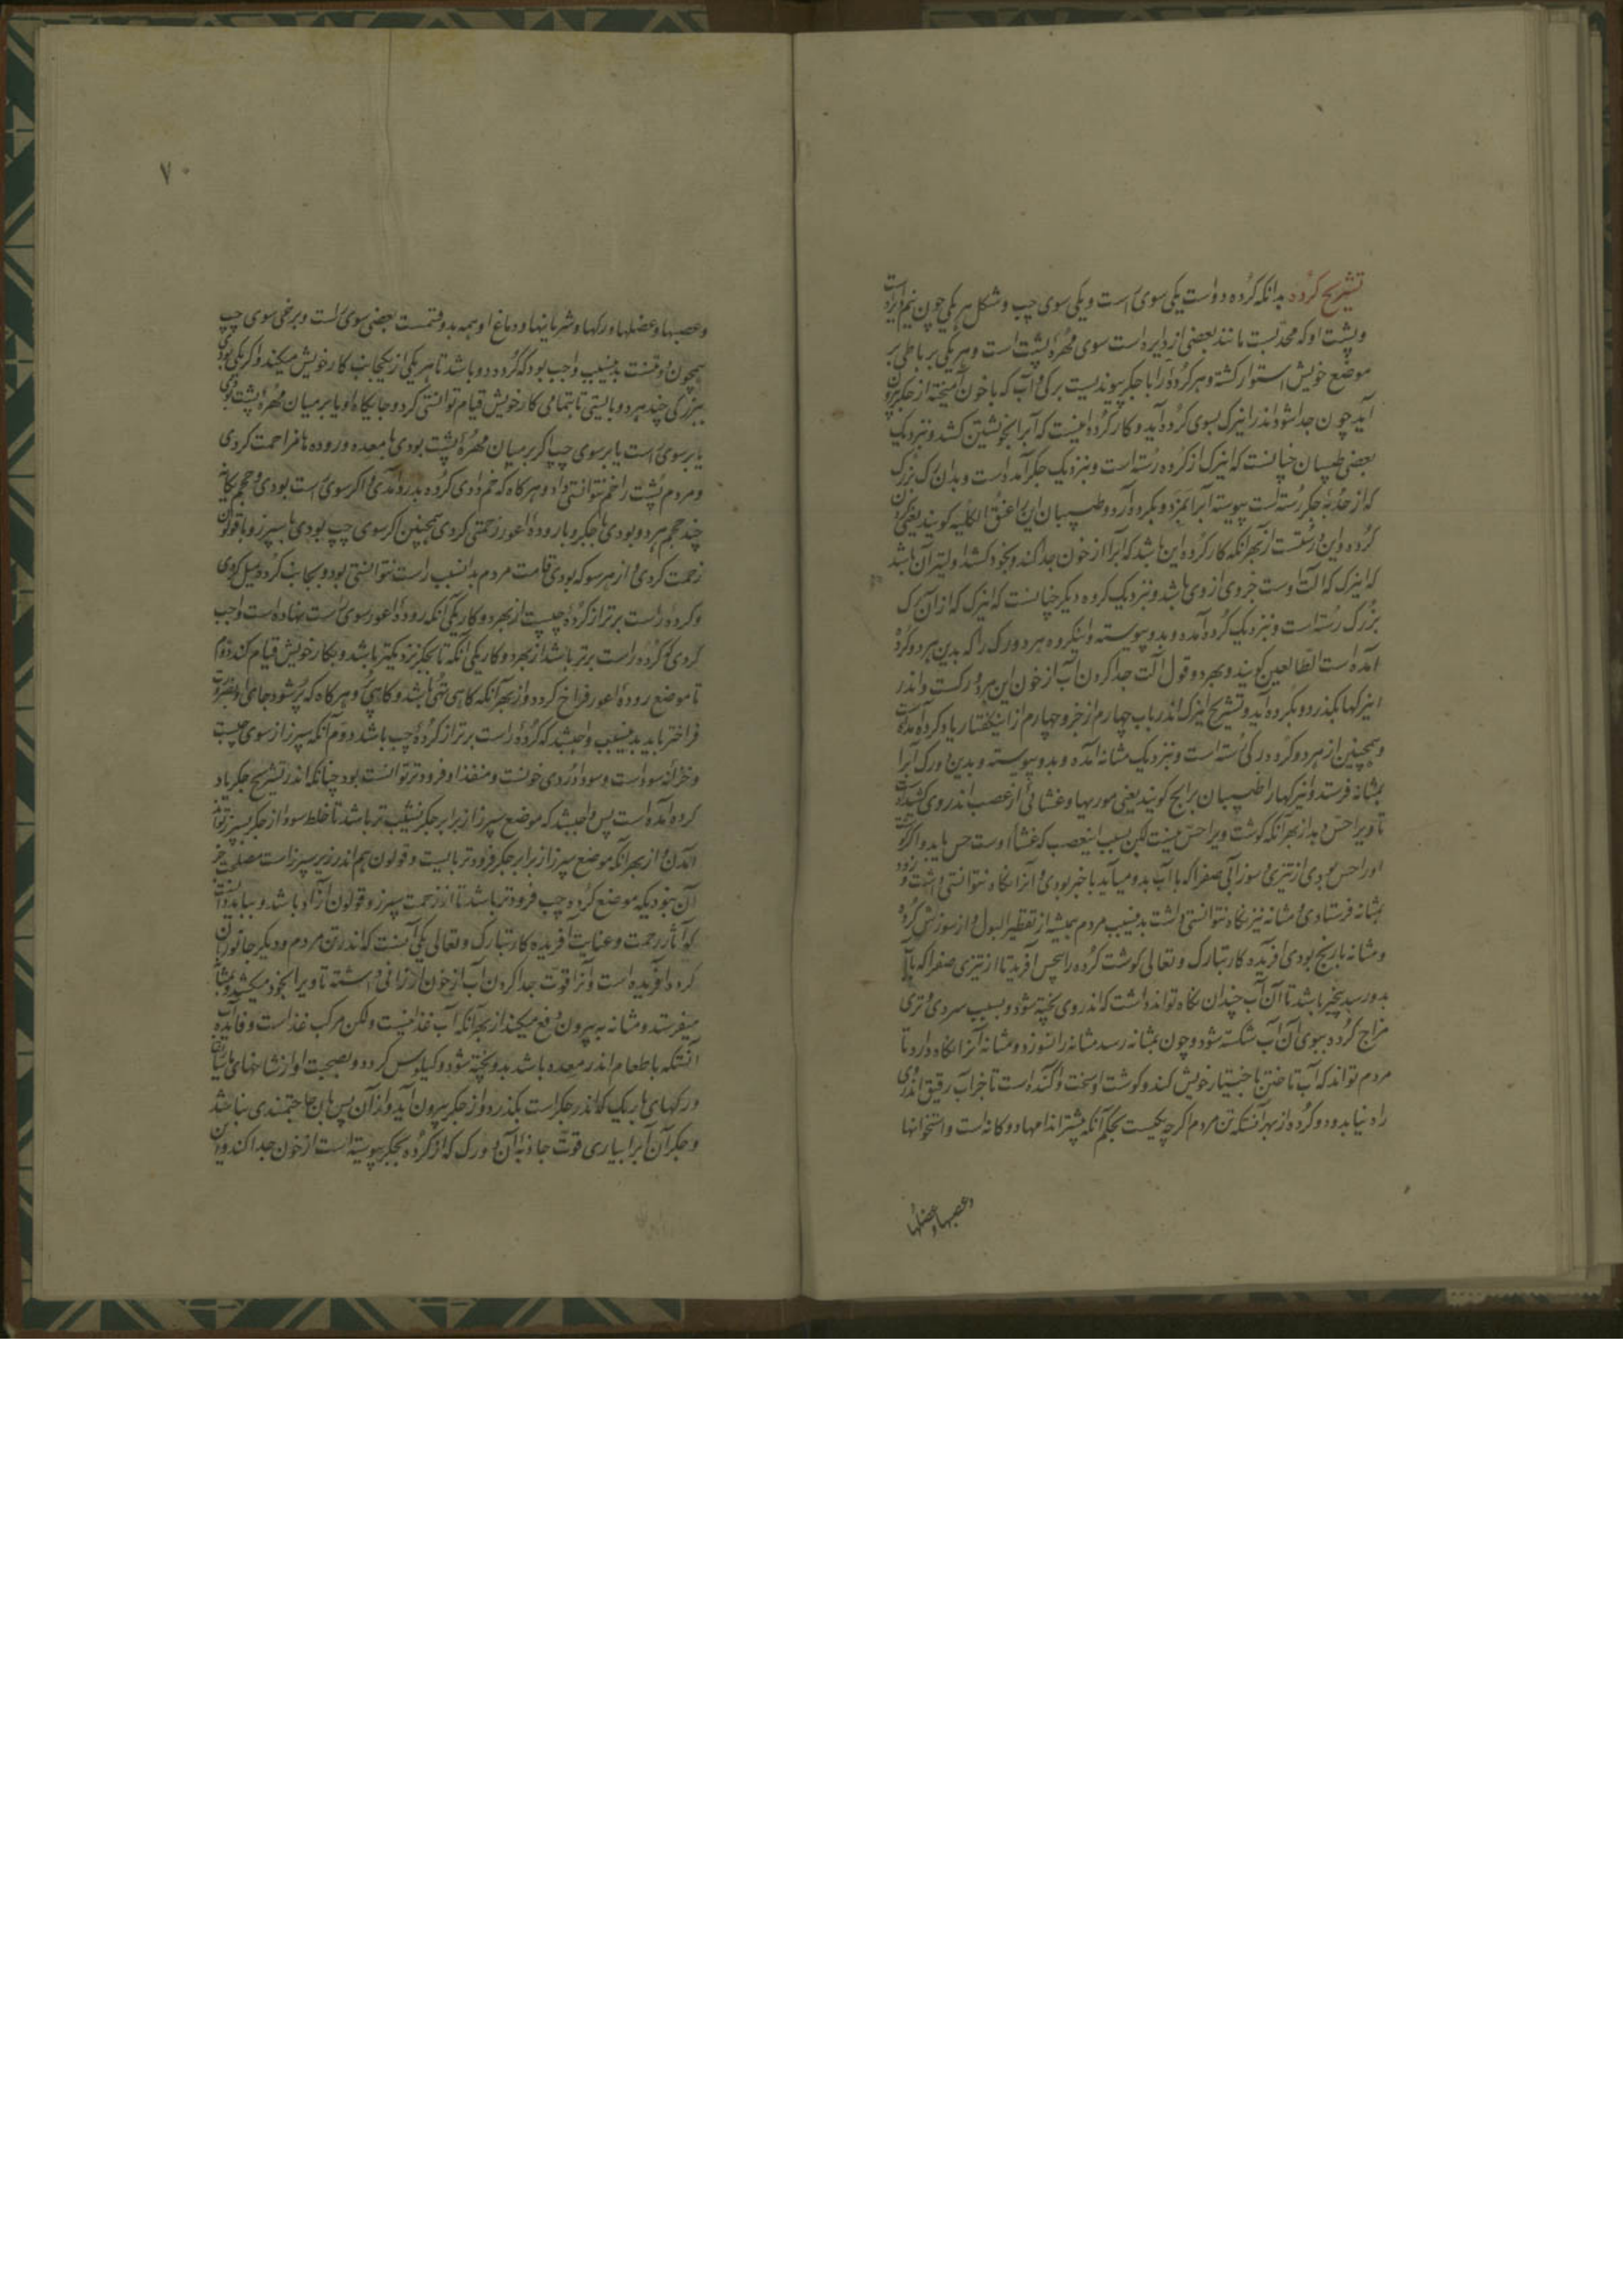 تشریح کرده بدانکه کرده دو است یکی سوی راست و یکی سوی چپ و شکل هر یکی چون نیم دایره است
و پشت او که محدبست مانند بعضی از دایره است سوی مهره پشت است و هر یکی بر باطی بر
موضع خویش استوار کشته و هر کرده را با جکر پیوندیست برکی و آب که با خون آمیخته از جکر برون
آید چون جدا شود اندر این رک بسوی کرده آید و کار کرده اینست که آبرا بخویشتن کشد و نزدیک
بعضی طبیبان چنانست که این رک از کرده رسته است و نزدیک جکر آمده است و بدان رک بزرک
که از حدبه جکر رسته است پیوسته آبرا بمزد و بکرده آرد و طبیبان این را عنق الکلیه کویند یعنی کردن
کرده و این درستست از بهر آنکه کار کرده این باشد که آبرا از خون جدا کند و بخود کشد و لیتر آن باشد
که این رک که آلت اوست جزوی از وی باشد و نزدیک کروه دیکر چنانست که این رک که از آن رک
بزرک رسته است و نزدیک کرده آمده و بدو پیوسته و اینکروه هر دو رک را که بدین هر دو کرده
آمده است الطالعین کویند و بهر دو قول آلت جدا کردن آب از خون این هر دو رکست و اندر
این رکها بکذرد و بکرده آید و تشریح این رک اندر باب چهارم از جزو چهارم از این کفتار یاد کرده آمده است
و همچنین از هر دو کرده رکی رسته است و نزدیک مثانه آمده و بدو پیوسته و بدین دو رک آبرا
بمثانه فرستد و این رکها را طبیبان برابخ کویند یعنی موریها و غشائی از عصب اندر وی کشیده است
تا ویرا حس دهد از بهر آنکه کوشت ویرا حس نیست لکن بسبب این عصب که غشاء اوست حس یابد و اکر کوشت
او را حس بودی از تیزی و سوز آبی صفرا که با آب بدو میآید با خبر بودی و آنرا نکاه نتوانستی داشت و زود
بمثانه فرستادی و مثانه نیز نکاه نتوانستی داشت بدینسبب مردم همیشه از تقطیر البول و از سوزش کرده
و مثانه با رنج بودی آفریده کار تبارک و تعالی کوشت کرده را بیحس آفرید تا از تیزی صفرا که با آب
بدو رسد بیخبر باشد تا آن آب چندان نکاه تواند داشت که اندر وی پخته شود و بسبب سردی و تری
مزاج کرده ببوی آن آب شکسته شود و چون بمثانه رسد مثانه را نسوزد و مثانه آنرا نکاه دارد تا
مردم تواند که آب تاختن باختیار خویش کند و کوشت او سخت و آکنده است تا جز آب رقیق اندر وی
راه نیابد و دو کرده از بهر آنستکه تن مردم اکر چه یکیست بحکم آنکه بیشتر اندامها دو کانه است و استخوانها
وعصبها وعضلها
۷۰
وعصبها وعضلها ورکها وشریانها ودماغ او همه بدو قسمست بعضی سوی راست و برخی سوی چپ
همچون دو تنست بدینسبب واجب بود که کرده دو باشد تا هر یکی از یکجانب کار خویش میکند و اکر یکی بودی
ببزرکی چند هر دو بایستی تا بتمامی کار خویش قیام توانستی کرد و جایکاه او یا بر میان مهره پشت بودی
یا بر سوی راست یا بر سوی چپ اکر بر میان مهره پشت بودی با معده و روده ها مزاحمت کردی
و مردم پشت را خم نتوانستی داد و هر کاه که خم دادی کرده بدرد آمدی و اکر سوی راست بودی و حجم یکی
چند حجم هر دو بودی با جکر و با روده اعور زحمتی کردی همچنین اکر سوی چپ بودی با سپرز و با قولون
زحمت کردی و از هر سو که بودی قامت مردم بدانسبب راست نتوانستی بود و بجانب کرده میل کردی
و کرده راست برتر از کرده چپست از بهر دو کار یکی آنکه روده اعور سوی راست نهاده است واجب
کردی که کرده راست برتر باشد از بهر دو کار یکی آنکه تا بجکر نزدیکتر باشد و بکار خویش قیام کند دوم
تا موضع روده اعور فراخ کردد و از بهر آنکه کاهی تهی باشد و کاهی پر و هر کاه که پر شود جای او بضرورت
فراختر باید بدینسبب واجبشد که کرده راست برتر از کرده چپ باشد دوم آنکه سپرز از سوی چپست
و خزانه سوداست و سودا دردی خونست و منفذ او فرودتر توانست بود چنانکه اندر تشریح جکر یاد
کرده آمده است پس واجبشد که موضع سپرز از برابر جکر نشیب تر باشد تا خلط سودا از جکر بسپرز تواند
آمدن و از بهر آنکه موضع سپرز از برابر جکر فرودتر بایست و قولون هم اندر زیر سپرز است مصلحت جز
آن نبود که موضع کرده چپ فرودتر باشد تا از زحمت سپرز و قولون آزاد باشد و بباید دانست
که آثار رحمت و عنایت آفریده کار تبارک و تعالی یکی آنست که اندر تن مردم و دیکر جانوران
کرده آفریده است و آنرا قوت جدا کردن آب از خون ارزانی داشته تا ویرا بخود میکشد و بمثانه
میفرستد و مثانه به بیرون دفع میکند از بهر آنکه آب غذا نیست ولکن مرکب غذاست و فایده
آنستکه با طعام اندر معده باشد بدو پخته شود و کیلوس کردد و بصحبت او از شاخهای باریک
و رکهای باریک که اندر جکر است بکذرد و از جکر بیرون آید و از آن پس بآن حاجتمندی نباشد
و جکر آن آبرا بیاری قوت جاذبه آن دو رک که از کرده بجکر پیوسته است از خون جدا کند و این